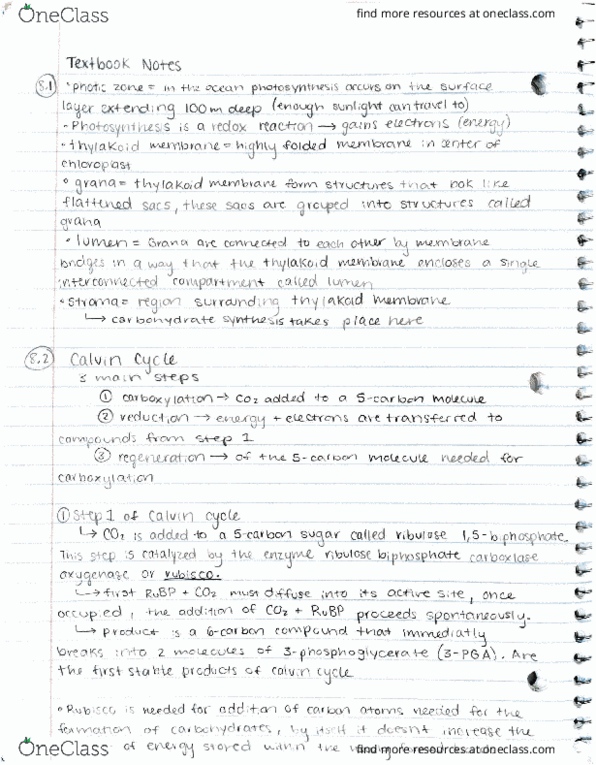 OneClass
find more resources at oneclass.com
Textbook Notes
8.1 • photic zone = in the ocean photosynthesis occurs on the surface
layer extending 100m deep (enough sunlight can travel to)
• Photosynthesis is a redox reaction → gains electrons (energy)
• thylakoid membrane = highly folded membrane in center of
chloroplast
• grana = thylakoid membrane form structures that look like
flattened sacs, these sacs are grouped into structures called
grana
• lumen = Grana are connected to each other by membrane
bridges in a way that the thylakoid membrane encloses a single
interconnected compartment called lumen
• stroma = region surranding thylakoid membrane
↳ carbohydrate synthesis takes place here
8.2 Calvin Cycle
3 main steps
① carboxylation → CO2 added to a 5-carbon molecule
② reduction → energy + electrons are transferred to
compounds from step 1
③ regeneration → of the 5-carbon molecule needed for
carboxylation
① Step 1 of Calvin cycle
↳ CO2 is added to a 5-carbon sugar called ribulose 1,5-biphosphate.
This step is catalyzed by the enzyme ribulose biphosphate carboxlase
oxygenase or rubisco.
↳ first RuBP + CO2 must diffuse into its active site, once
occupied, the addition of CO2 + RuBP proceeds spontaneously.
↳ product is a 6-carbon compound that immediatly
breaks into 2 molecules of 3-phosphoglycerate (3-PGA). Are
the first stable products of calvin cycle
• Rubisco is needed for addition of carbon atoms needed for the
formation of carbohydrates, by itself it doesnt increase the
of energy stored within the
OneClass
find more resources at oneclass.com